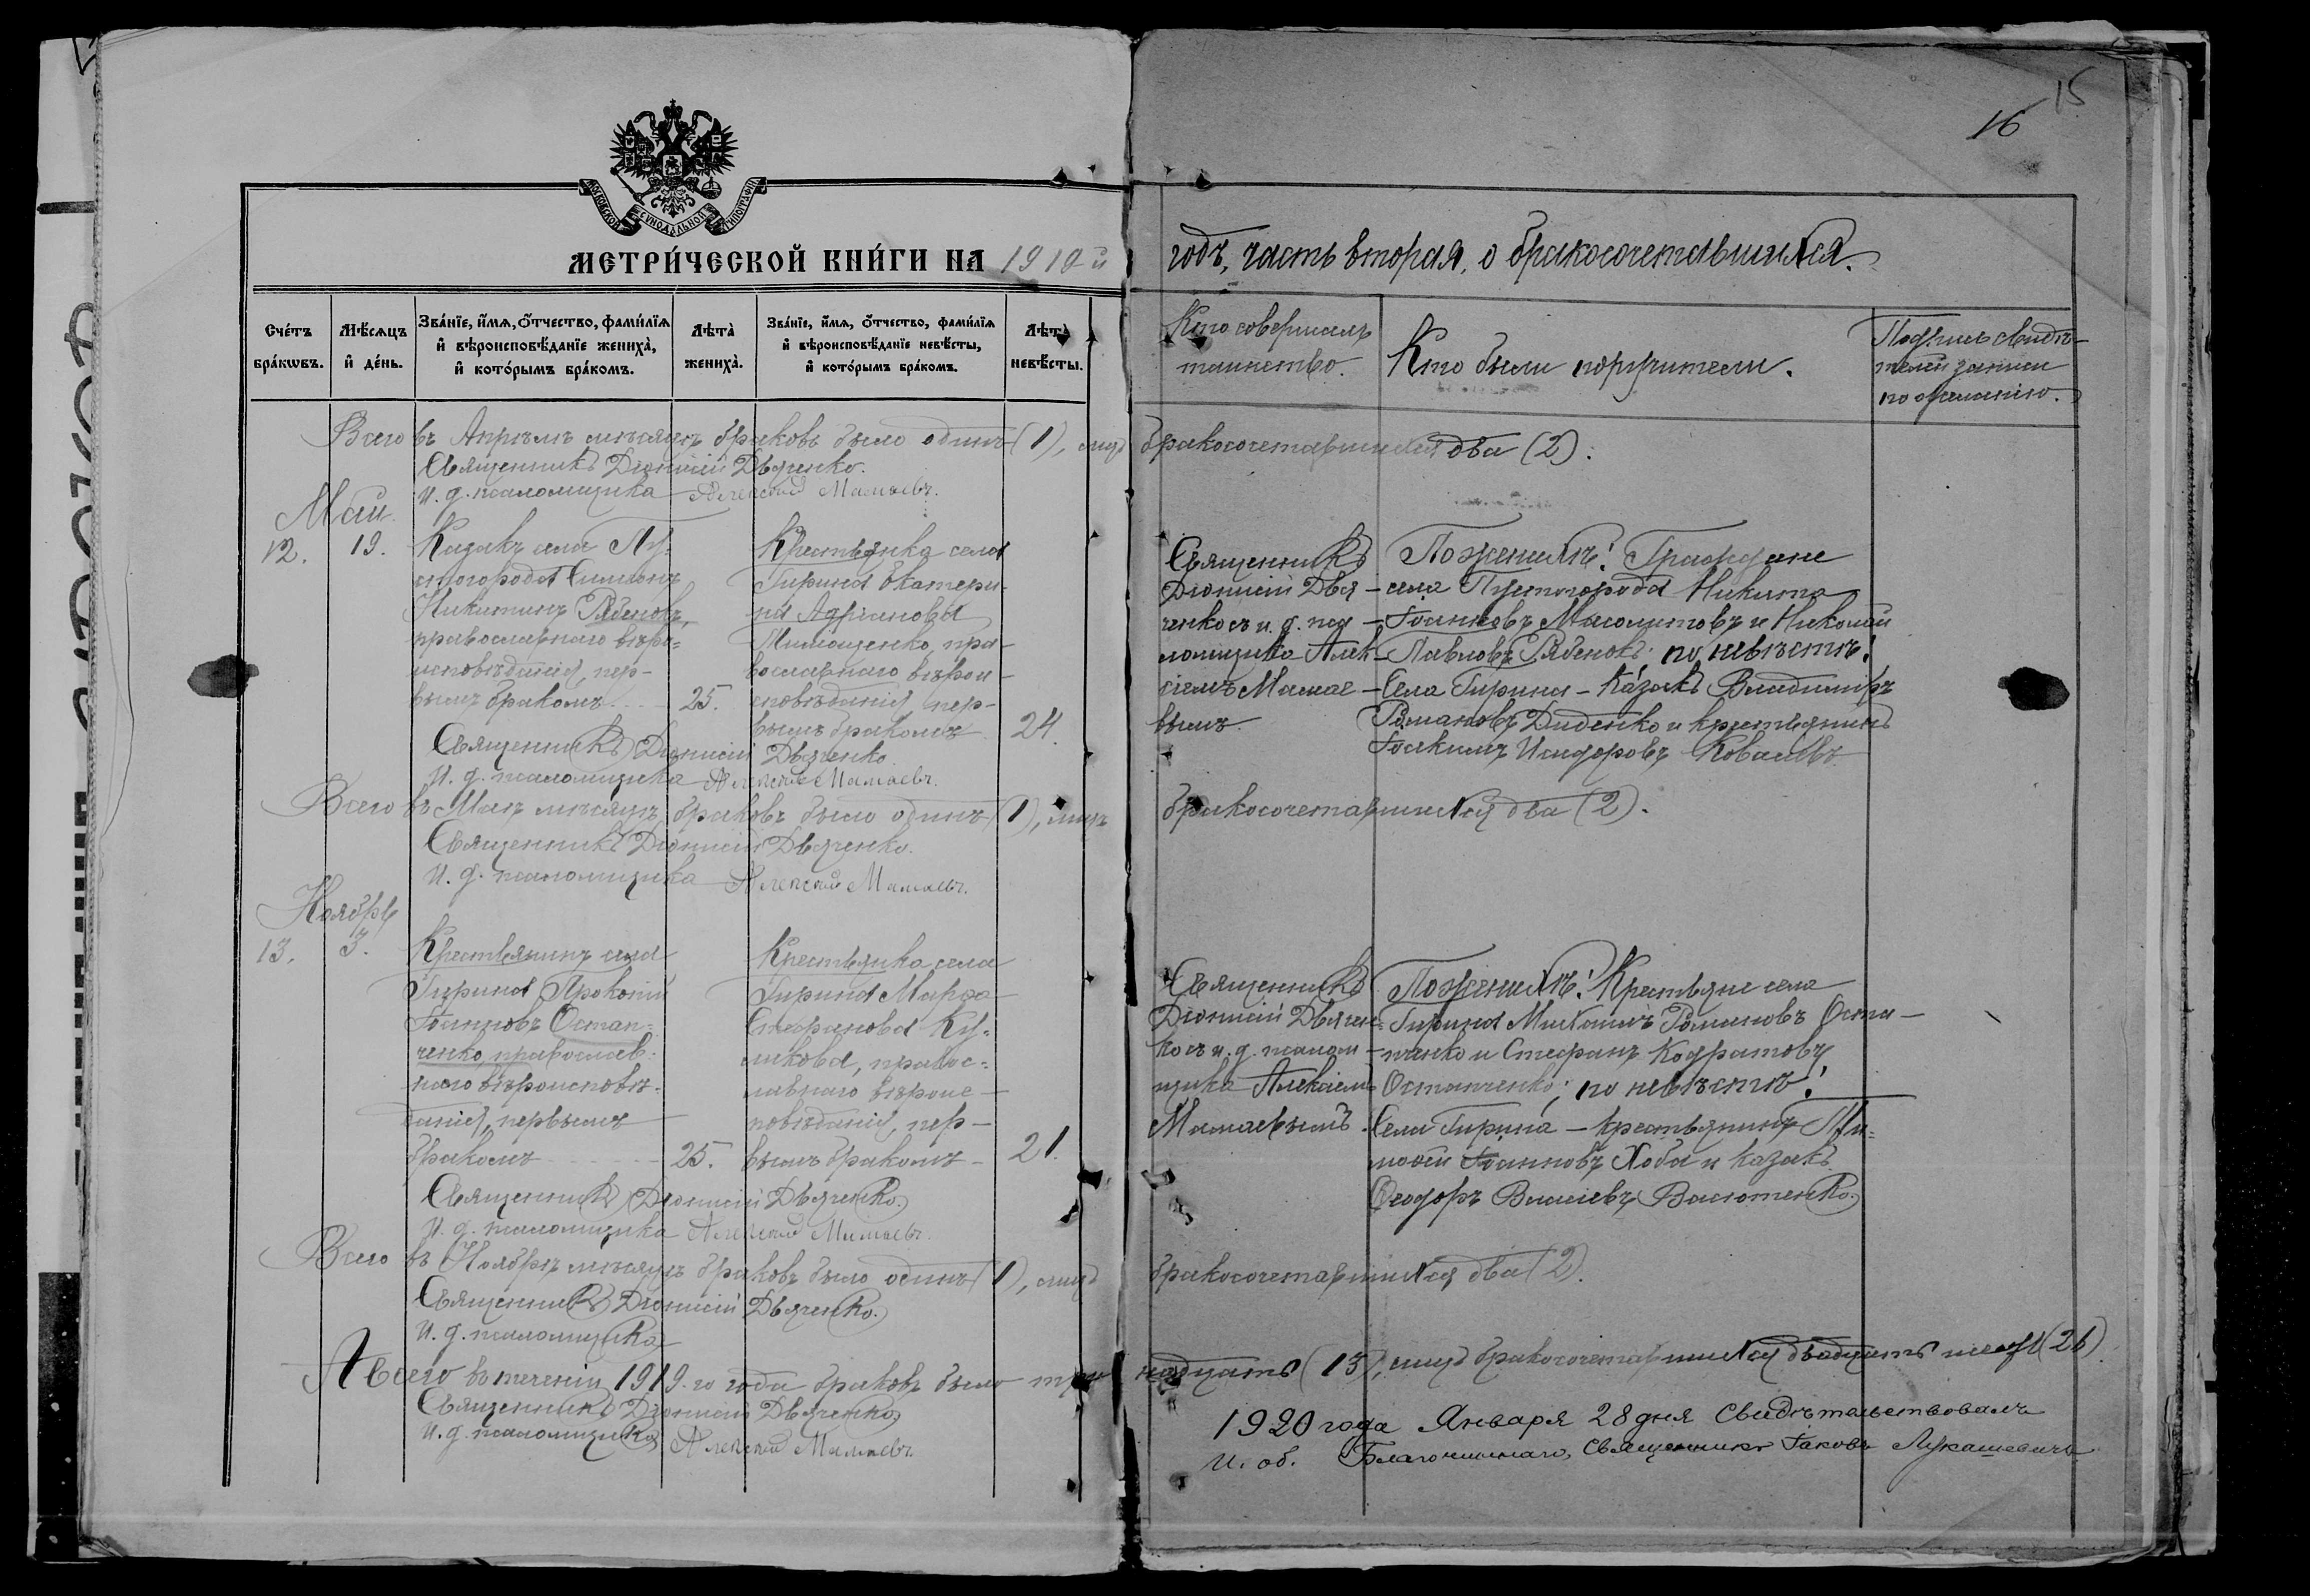 16 15
МОСКОВСКОЙ СѴНОДАЛЬНОЙ ТИПОГРАФІИ
МЕТРИ́ЧЕСКОЙ КНИ́ГИ НА 1919 й
годъ, часть вторая, о бракосочетавшихся.
Сче́тъ бра́кѡвъ.
Мѣ́сѧцъ и҆ де́нь.
Зва́нїе, и҆́мѧ, ѻ҆́тчество, фами́лїѧ
и҆ вѣроисповѣ́данїе жениха̀,
и҆ кото́рымъ бра́комъ.
Лѣта̀ жениха̀.
Зва́нїе, и҆́мѧ, ѻ҆́тчество, фами́лїѧ
и҆ вѣроисповѣ́данїе невѣ́сты,
и҆ кото́рымъ бра́комъ.
Лѣта̀ невѣ́сты.
Кто совершалъ
таинство.
Кто были поручители.
Подпись свидѣ-
телей записи
по желанію.
Всего въ Апрѣлѣ мѣсяцѣ браковъ было одинъ (1), лицъ бракосочетавшихся два (2).
Священникъ Діонисій Дьяченко.
И. д. псаломщика Алексій Мамаевъ.
Май
12. 19.
Казакъ села Пу-
стогорода Симеонъ
Никитинъ Рябенокъ,
православнаго вѣро-
исповѣданія, пер-
вымъ бракомъ. 25.
Крестьянка села
Гирина Екатери-
на Адрианова
Тимощенко, пра-
вославнаго вѣрои-
сповѣданія, пер-
вымъ бракомъ 24.
Священникъ
Діонисій Дья-
ченко съ и. д. пса-
ломщика Алек-
сіемъ Мамае-
вымъ.
По женихѣ: Граждане
села Пустогорода Никита
Іоанновъ Масолитовъ и Николай
Павловъ Рябенокъ; по невѣстѣ:
Села Гирина - Казакъ Владимиръ
Романовъ Диденко и крестьянинъ
Іоакимъ Исидоровъ Ковалёвъ.
Священникъ Діонисій Дьяченко
И. д. псаломщика Алексій Мамаевъ.
Всего въ Маѣ мѣсяцѣ браковъ было одинъ (1), лицъ бракосочетавшихся два (2).
Священникъ Діонисій Дьяченко.
И. д. псаломщика Алексій Мамаевъ.
Ноябрь
13. 3.
Крестьянинъ села
Гирина Прокопій
Іоанновъ Остап-
ченко, православ-
наго вѣроисповѣ-
данія, первымъ
бракомъ 25.
Крестьянка села
Гирина Марфа
Стефанова Ку-
ликова, правос-
лавнаго вѣроис-
повѣданія, пер-
вымъ бракомъ - 21.
Священникъ
Діонисій Дьячен-
ко съ и. д. псалом-
щика Алексіемъ
Мамаевымъ.
По женихѣ: Крестьяне села
Гирина Михаилъ Романовъ Оста-
пченко и Стефанъ Кодратовъ
Остапченко; по невѣстѣ:
Села Гирина - крестьянинъ Ти-
моѳей Іоанновъ Хоба и казакъ
Ѳеодоръ Власіевъ Васютенко.
Священникъ Діонисій Дьяченко.
И. д. псаломщика Алексій Мамаевъ.
Всего въ Ноябрѣ мѣсяцѣ браковъ было одинъ (1), лицъ бракосочетавшихся два (2).
Священникъ Діонисій Дьяченко.
И. д. псаломщика
А всего въ теченіи 1919-го года браковъ было три надцать (13), лицъ бракосочетавшихся двадцать шесть (26).
Священникъ Діонисій Дьяченко
И. д. псаломщика Алексій Мамаевъ.
1920 года Января 28 дня Свидѣтельствовалъ
И. об. Благочиннаго, Священникъ Іаковъ Лукашевичъ